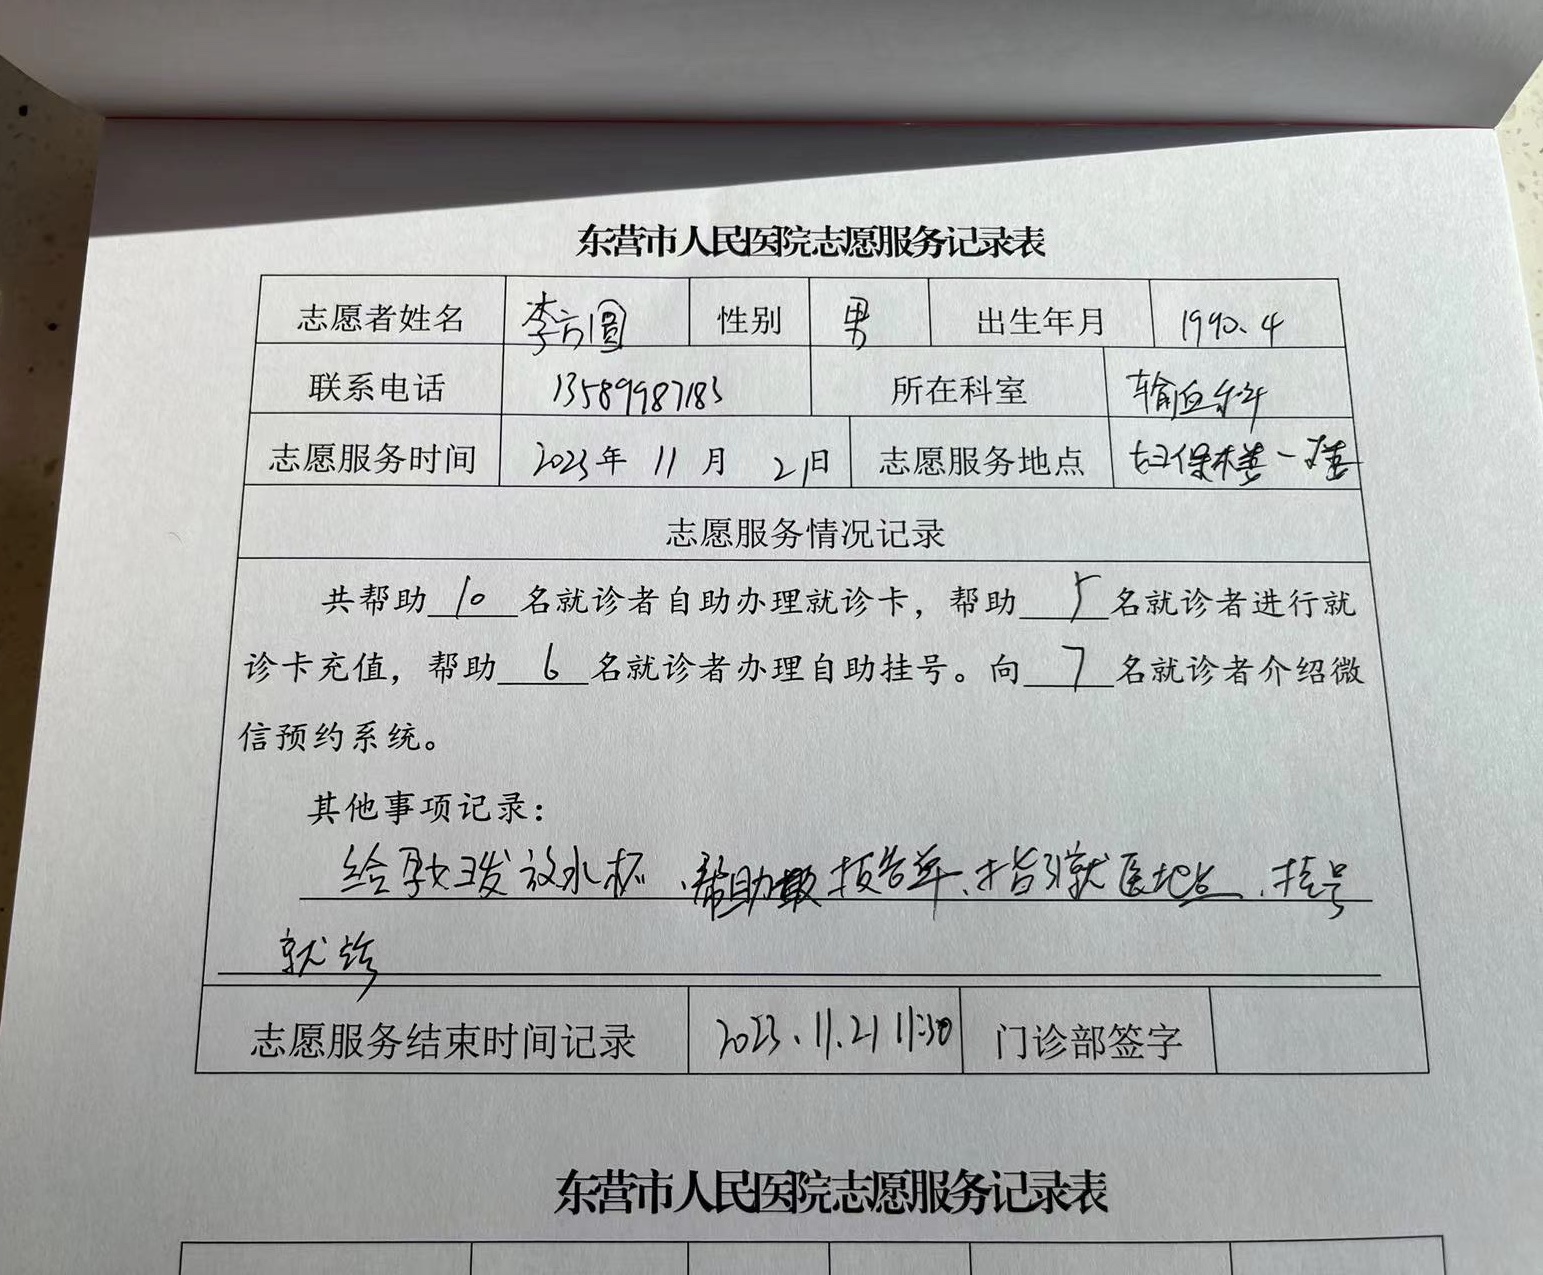 东营市人民医院志愿服务记录表
志愿者姓名 李方圆 性别 男 出生年月 1990.4
联系电话 13589987183 所在科室 输血科
志愿服务时间 2023年 11 月 21日 志愿服务地点 妇保楼一楼
志愿服务情况记录
共帮助 10 名就诊者自助办理就诊卡，帮助 5 名就诊者进行就
诊卡充值，帮助 6 名就诊者办理自助挂号。向 7 名就诊者介绍微
信预约系统。
其他事项记录：
给孕妇发放水杯、帮助取报告单、指引就医地点、挂号
就诊
志愿服务结束时间记录 2023.11.21 11:30 门诊部签字
东营市人民医院志愿服务记录表